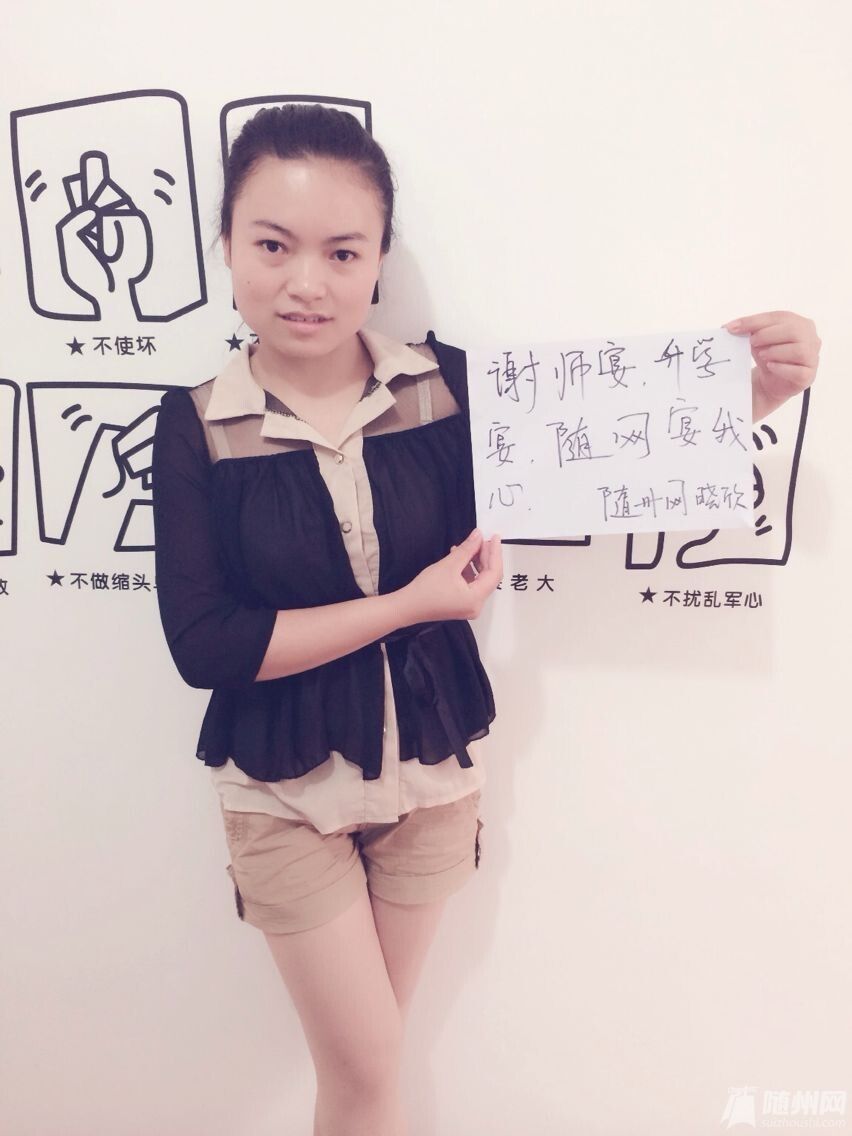 ★不使坏
★不
谢师宴，升学
宴，随网宴我
心．
随州网晓欣
★不做缩头
老大
★不扰乱军心
随州网
suizhoushi.com